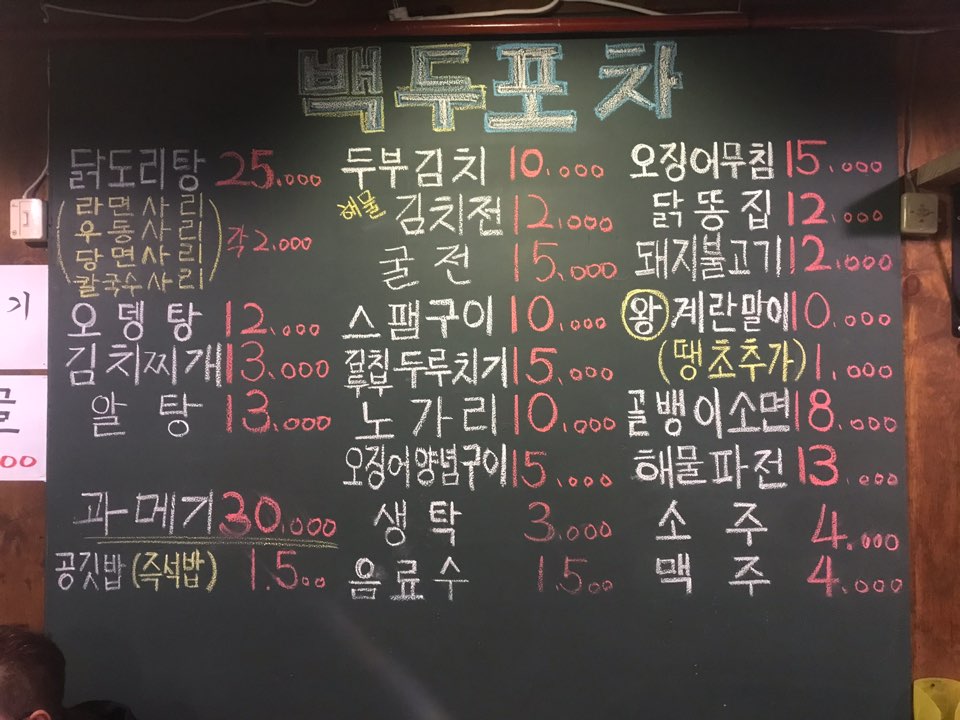 백두포차
닭도리탕 25.000
(라면사리
우동사리
당면사리
칼국수사리) 각 2.000
오뎅탕 12.000
김치찌개 13.000
알탕 13.000
과메기 30.000
공깃밥 (즉석밥) 1.500
두부김치 10.000
해물 김치전 12.000
굴전 15.000
스팸구이 10.000
김치 두부 두루치기 15.000
노가리 10.000
오징어양념구이 15.000
생탁 3.000
음료수 1.500
오징어무침 15.000
닭똥집 12.000
돼지불고기 12.000
왕 계란말이 10.000
(땡초추가) 1.000
골뱅이소면 18.000
해물파전 13.000
소주 4.000
맥주 4.000
기
00